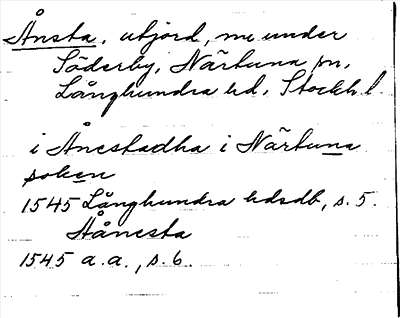 Ånsta, utjord, nu under
Söderby, Närtuna sn,
Långhundra hd, Stockh. l.
i Ånestadha i Närtuna
soken
1545 Långhundra hdsdb, s. 5.
Hånesta
1545 a.a., s. 6.